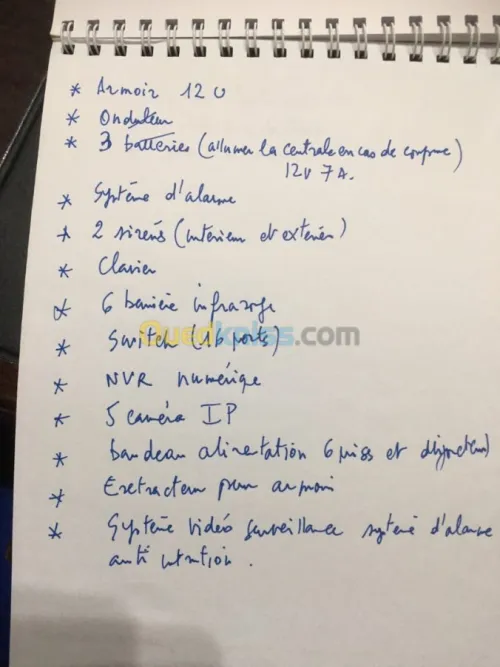 * Armoir 12 U
* Onduleur
* 3 batteries (allumer la centrale en cas de coupure)
12V 7A.
* Système d'alarme
* 2 sirens (interieur et exterier)
* Clavier
* 6 barrière infrarouge
Ouedkniss.com
* Switch (16 ports)
* NVR numérique
* 5 caméra IP
* bandeau alimentation 6 priss et
* Extracteur pour armoir
* Système vidéo surveillance système d'alarme
anti intrution.